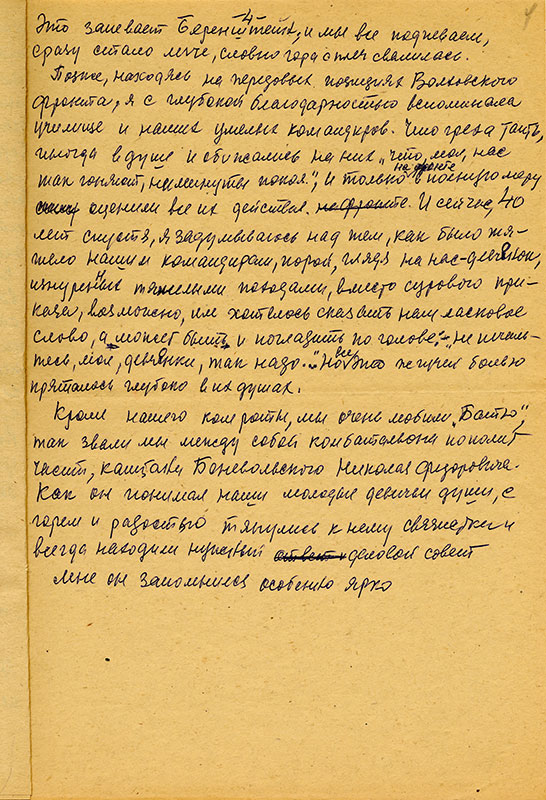 4
-4-
Это запевает Беренштейн, и мы все подпеваем,
сразу стало легче, словно гора с плеч свалилась.
Позже, находясь на передовых позициях Волховского
фронта, я с глубокой благодарностью вспоминала
училище и наших умелых командиров. Чего греха таить,
иногда в душе и обижались на них „что, мол, нас
так гоняют, ни минуты покоя.", и только на фронте в полную меру
оценили все их действия. на фронте. И сейчас, 40
лет спустя, я задумываюсь над тем, как было тя-
жело нашим командирам, порой, глядя на нас-девчонок,
изнуренных тяжелыми походами, вместо сурового при-
каза, возможно, им хотелось сказать нам ласковое
слово, а может быть и погладить по голове:-„не печаль-
тесь, мол, девчёнки, так надо..." Но все это жгучей болью
пряталось глубоко в их душах.
Кроме нашего комроты, мы очень любили „Батю",
так звали мы между собой комбатальона по полит
части, капитана Боневольского Николая Фёдоровича.
Как он понимал наши молодые девичьи души, с
горем и радостью тянулись к нему связистки и
всегда находили нужный ответ и деловой совет
Мне он запомнился особенно ярко